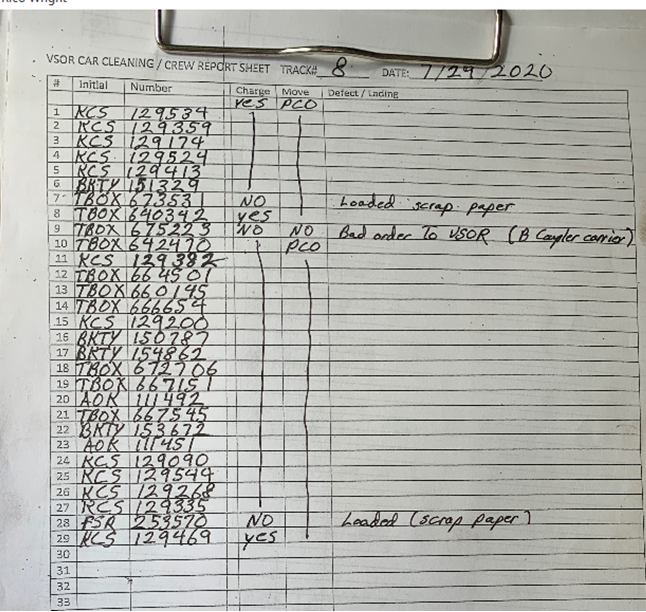 VSOR CAR CLEANING / CREW REPORT SHEET TRACK# 8 DATE: 7/29/2020
# Initial Number Charge Move Defect / Lading
yes PCO
1 KCS 129534
2 KCS 129359
3 KCS 129174
4 KCS 129524
5 KCS 129413
6 BKTY 151329
7 TBOX 673531 NO Loaded scrap paper
8 TBOX 640342 yes
9 TBOX 675223 NO NO Bad order To VSOR (B Coupler carrier)
10 TBOX 642470 PCO
11 KCS 129382
12 TBOX 664501
13 TBOX 660195
14 TBOX 666654
15 KCS 129200
16 BKTY 150787
17 BKTY 154862
18 TBOX 672706
19 TBOX 667151
20 AOK 111492
21 TBOX 667545
22 BKTY 153672
23 AOK 111451
24 KCS 129090
25 KCS 129544
26 KCS 129268
27 KCS 129335
28 FSR 253570 NO Loaded (scrap paper)
29 KCS 129469 yes
30
31
32
33